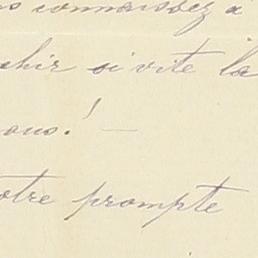 connaissez à
si vite la
ous! —
otre prompte